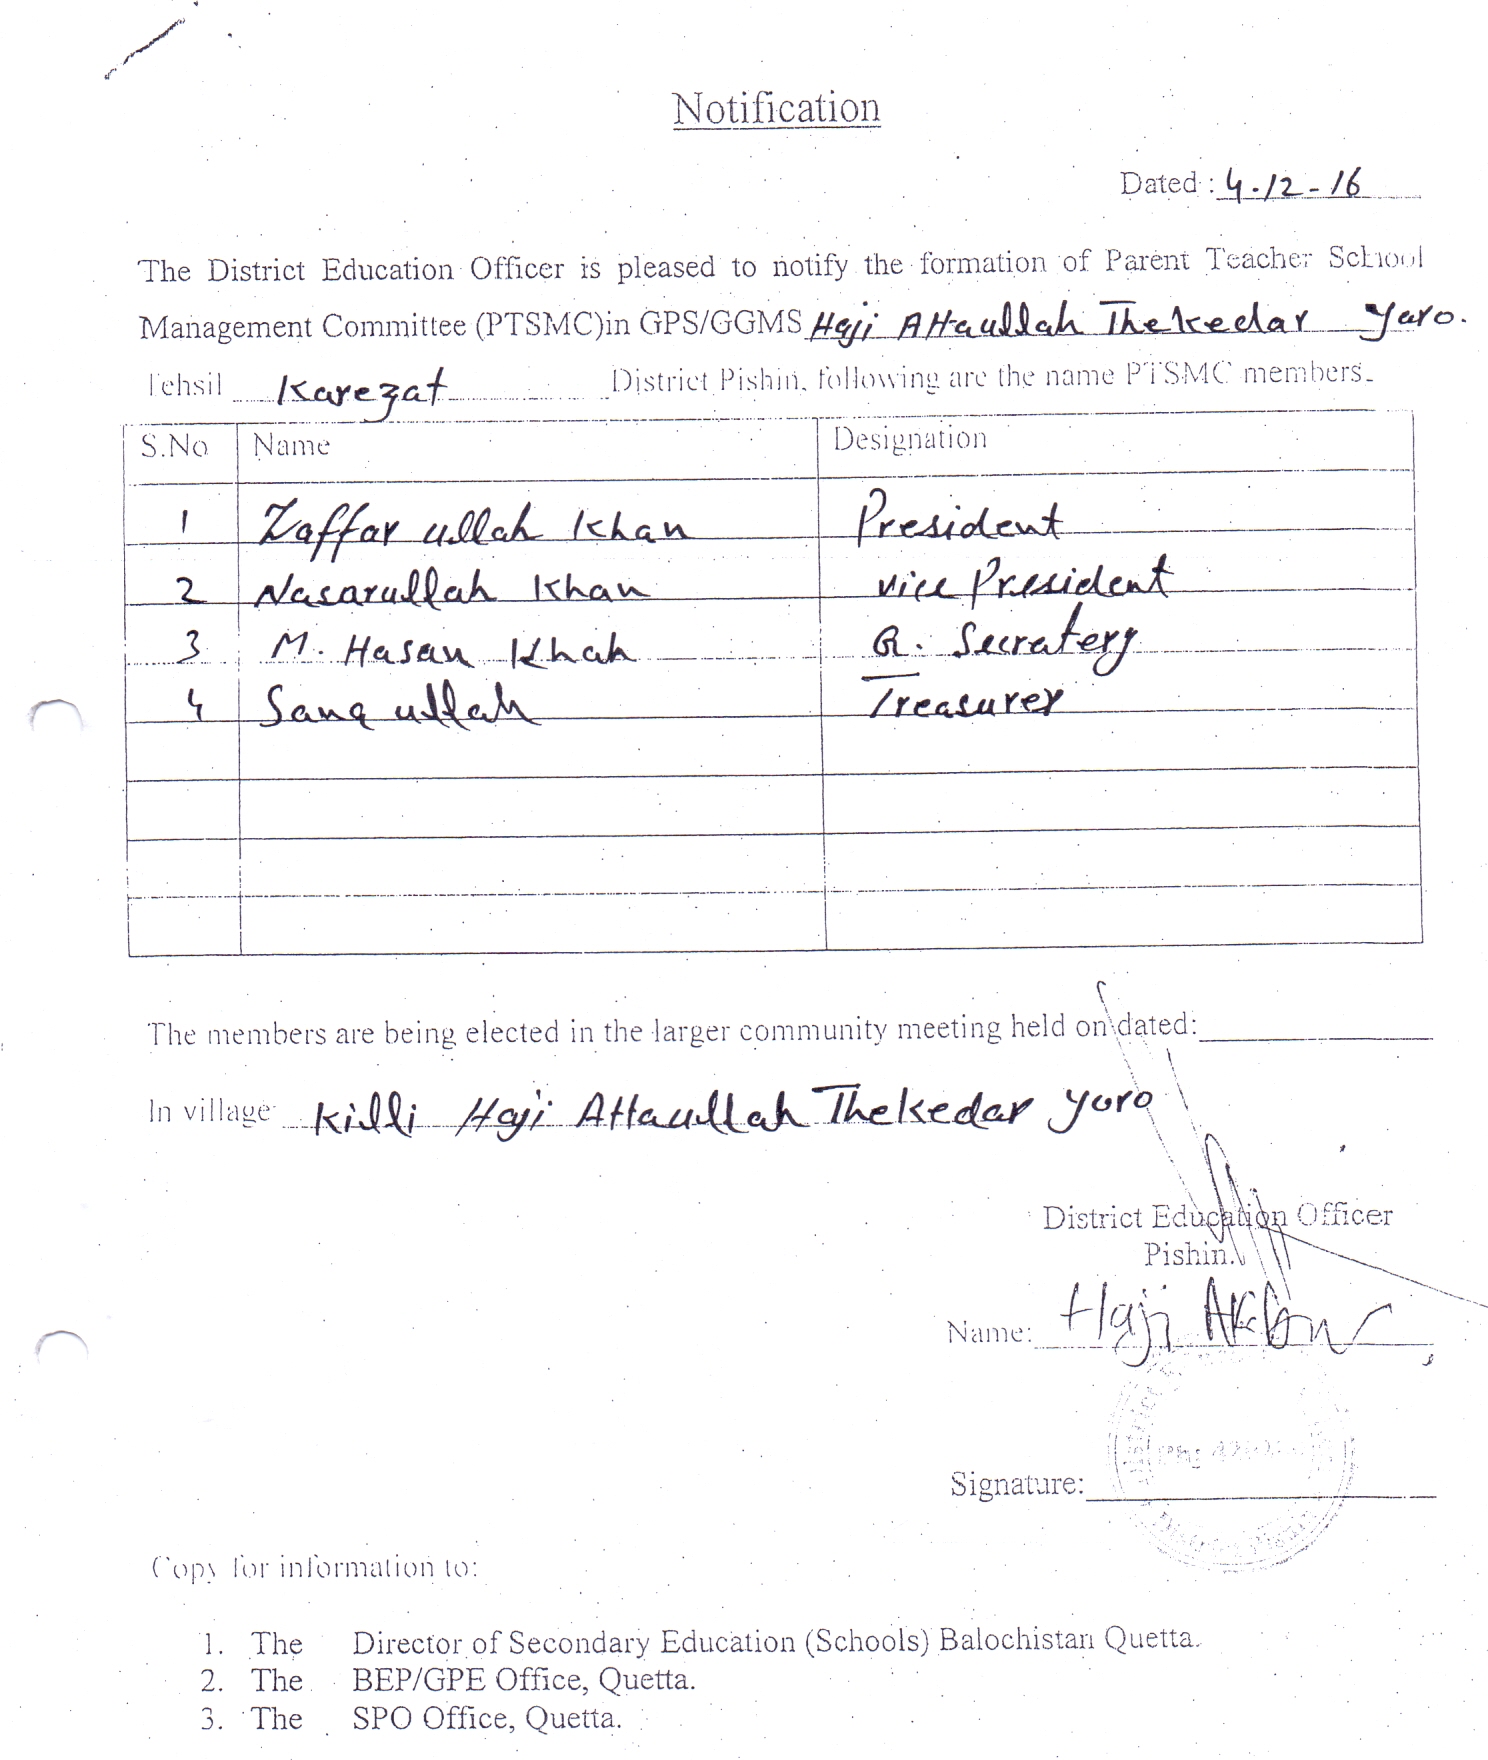 Notification
Dated : 4.12-16
The District Education Officer is pleased to notify the formation of Parent Teacher School
Management Committee (PTSMC)in GPS/GGMS Haji Attaullah Thekedar Yaro.
Tehsil Karezat District Pishin, following are the name PTSMC members.
S.No Name Designation
1 Zaffar ullah Khan President
2 Nasarullah Khan vice President
3 M. Hasan Khan G. Secratery
4 Sana ullah Treasurer
The members are being elected in the larger community meeting held on dated:
In village Killi Haji Attaullah Thekedar Yoro
District Education Officer
Pishin.
Name: Haji Akbar
Signature:
District Pishin
Copy for information to:
1. The Director of Secondary Education (Schools) Balochistan Quetta.
2. The BEP/GPE Office, Quetta.
3. The SPO Office, Quetta.